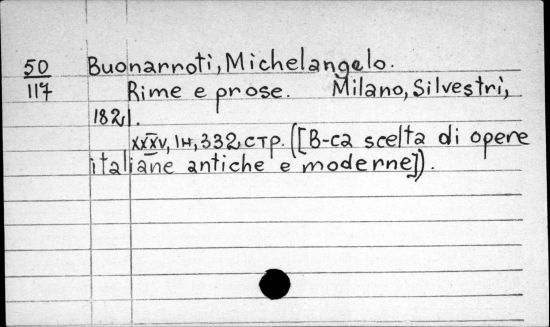 50 Buonarroti, Michelangelo.
117 Rime e prose. Milano, Silvestri,
1821.
XXXV, 1н, 332 стр. ([B-ca scelta di opere
italiane antiche e moderne]).